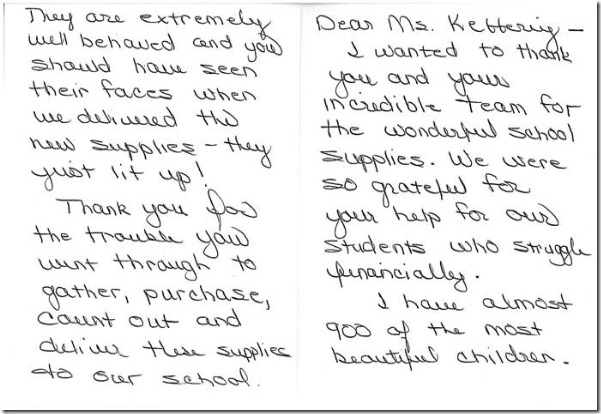 Dear Ms. Kettering –
I wanted to thank
you and your
incredible team for
the wonderful school
supplies. We were
so grateful for
your help for our
students who struggle
financially.
I have almost
900 of the most
beautiful children.
They are extremely
well behaved and you
should have seen
their faces when
we delivered the
new supplies – they
just lit up!
Thank you for
the trouble you
went through to
gather, purchase,
count out and
deliver these supplies
to our school.